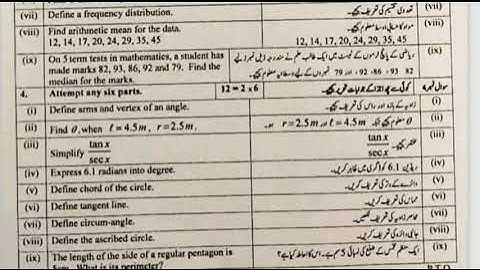 (vii) Define a frequency distribution. تعددی تقسیم کی تعریف کیجیے۔ (vii)
(viii) Find arithmetic mean for the data. مواد کا حسابی اوسط معلوم کیجیے۔ (viii)
12, 14, 17, 20, 24, 29, 35, 45 12, 14, 17, 20, 24, 29, 35, 45
(ix) On 5 term tests in mathematics, a student has (ix)
made marks 82, 93, 86, 92 and 79. Find the 82 93 -86 -92 اور 79
median for the marks.
4. Attempt any six parts. 12 = 2 x 6 کوئی سے چھ اجزا کے جوابات سوال نمبر 4
(i) Define arms and vertex of an angle. زاویہ کے بازو اور راس کی تعریف کیجیے۔ (i)
(ii) Find θ, when ℓ = 4.5m, r = 2.5m, θ معلوم کیجیے ℓ = 4.5m اور r = 2.5m (ii)
(iii) Simplify tan x / sec x مختصر کیجیے۔ tan x / sec x (iii)
(iv) Express 6.1 radians into degree. 6.1 ریڈین کو ڈگری میں ظاہر کریں۔ (iv)
(v) Define chord of the circle. دائرے کے وتر کی تعریف کریں۔ (v)
(vi) Define tangent line. مماس کی تعریف کریں۔ (vi)
(vii) Define circum-angle. محاصر زاویہ کی تعریف لکھیں۔ (vii)
(viii) Define the ascribed circle. جانبی دائرہ کی تعریف کریں۔ (viii)
(ix) The length of the side of a regular pentagon is ایک منتظم مخمس کے ضلع کی لمبائی 5 سم ہے۔ اس کا احاطہ کیا ہے؟ (ix)
5cm. What is its perimeter? P.T.O